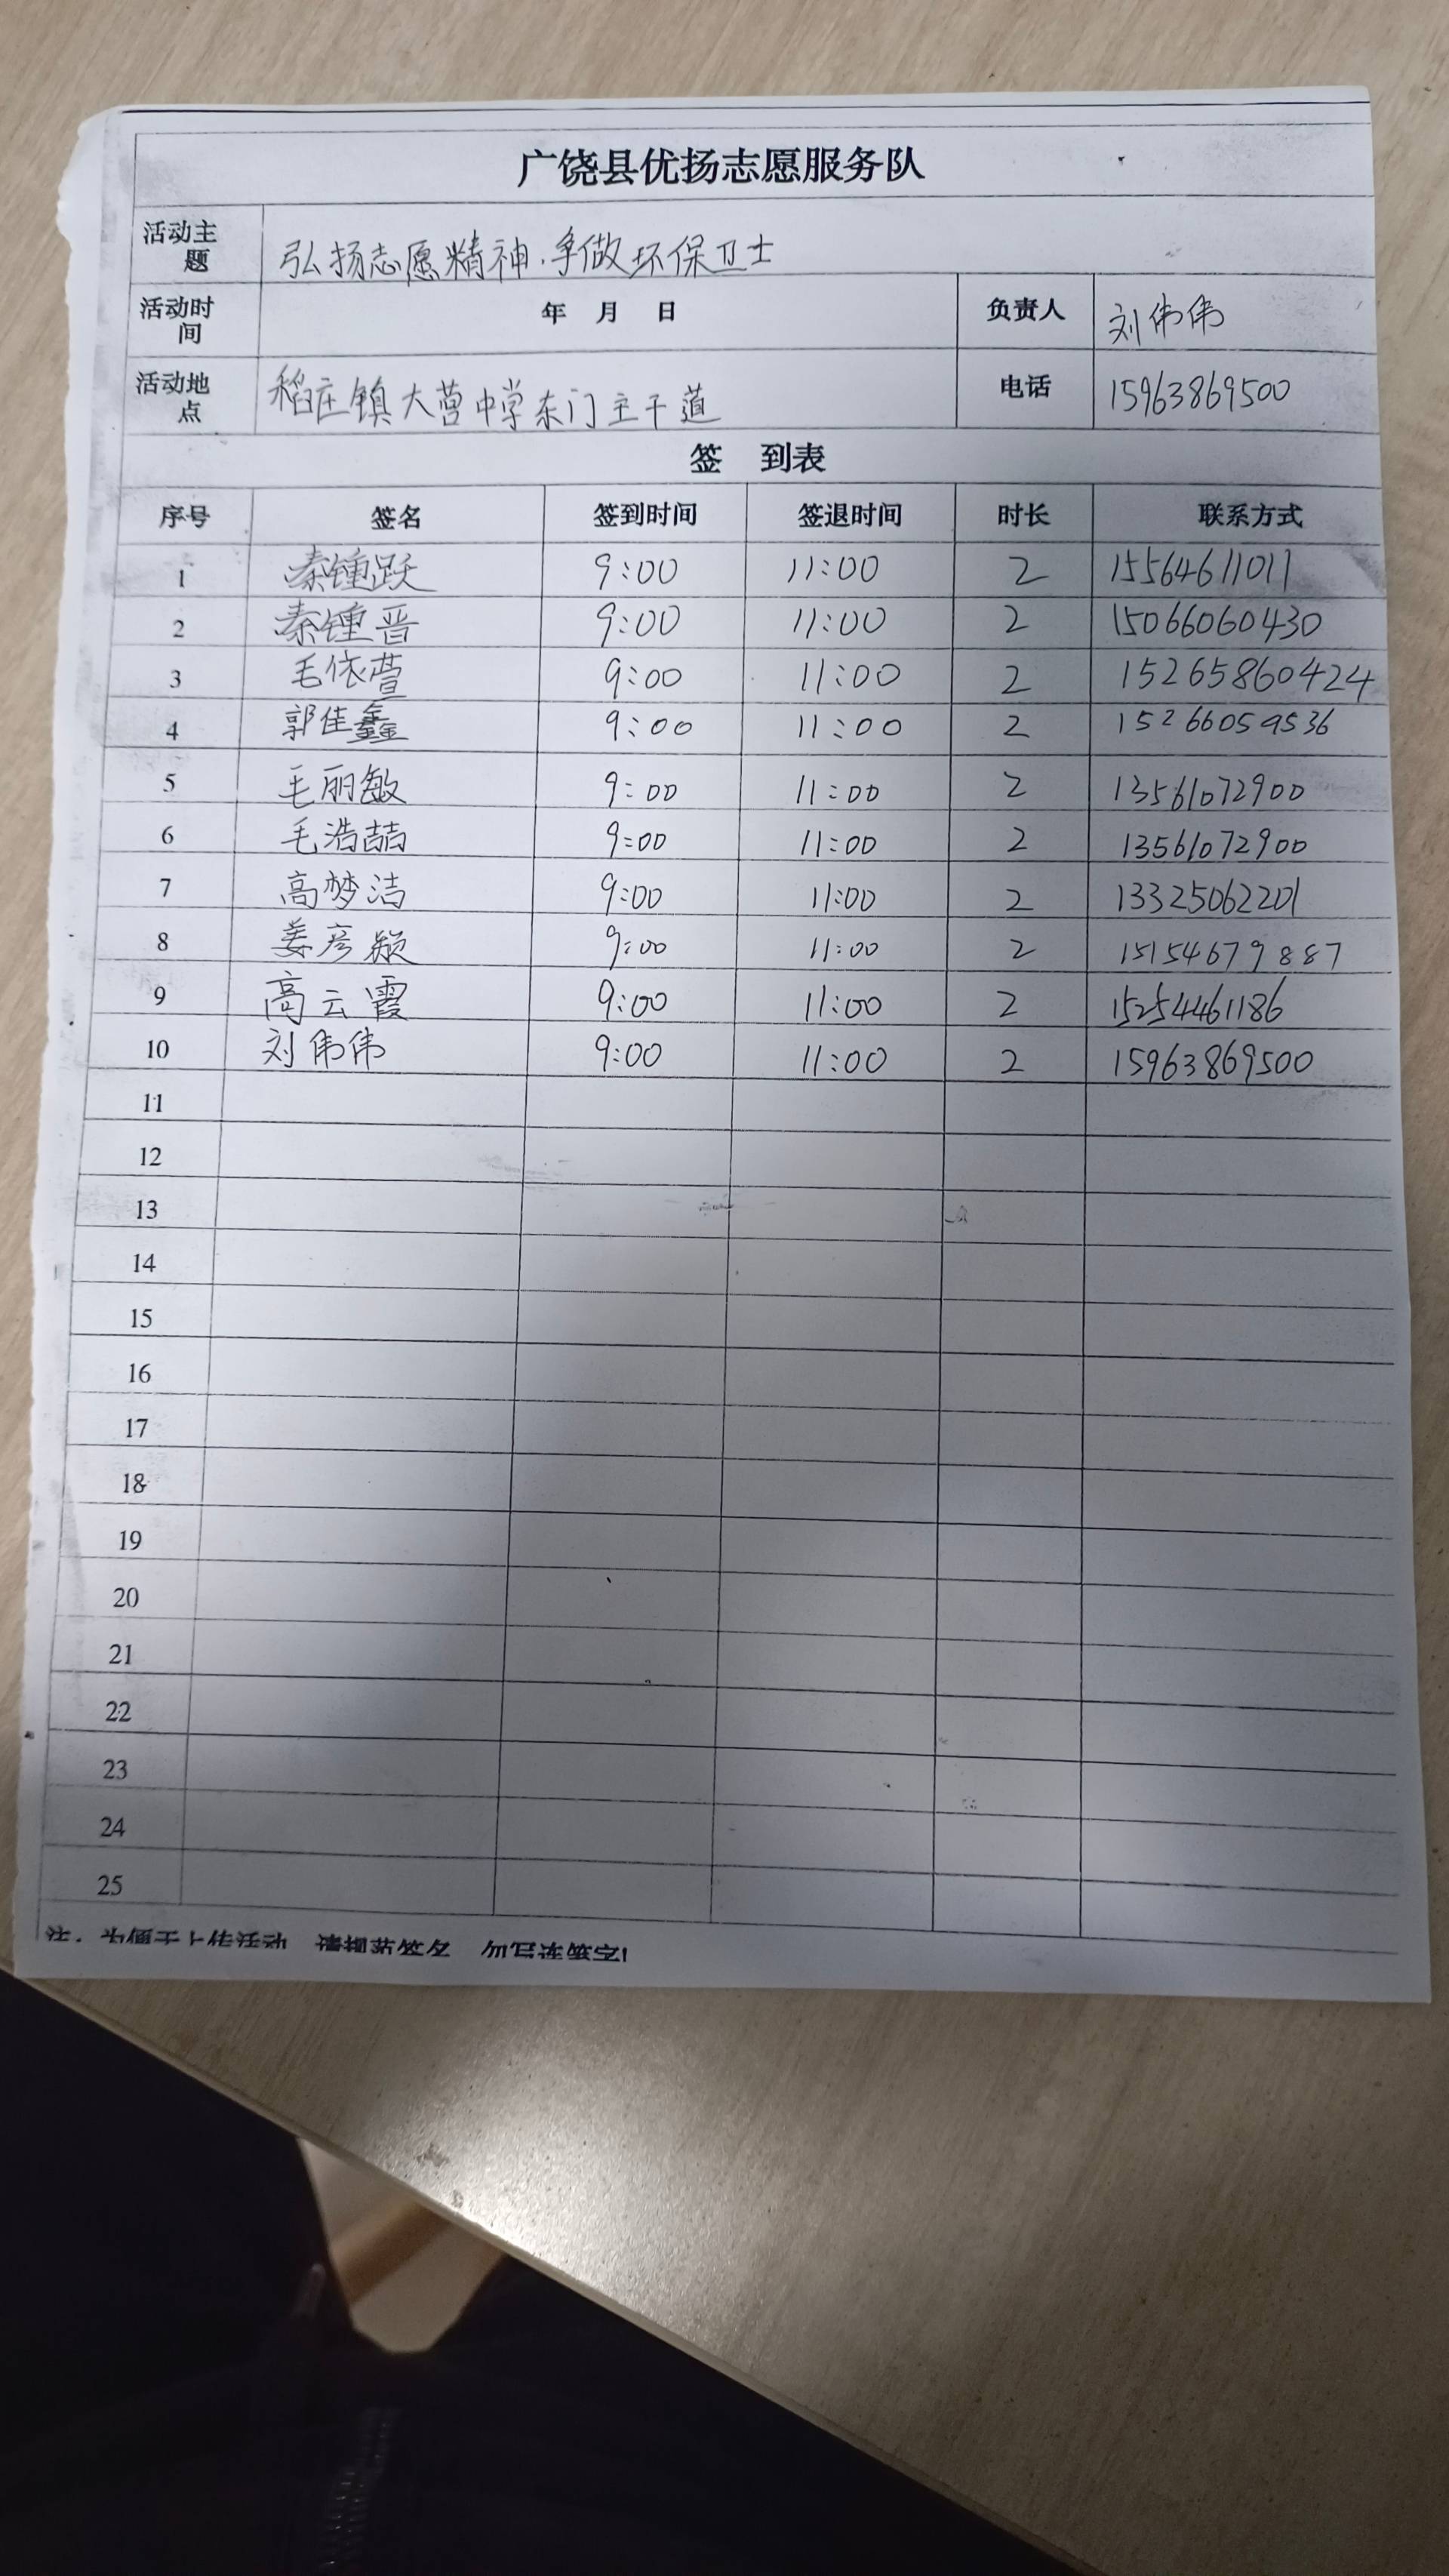 广饶县优扬志愿服务队
活动主题 弘扬志愿精神.争做环保卫士
活动时间 年 月 日 负责人 刘伟伟
活动地点 稻庄镇大营中学东门主干道 电话 15963869500
签 到表
序号 签名 签到时间 签退时间 时长 联系方式
1 秦锺跃 9:00 11:00 2 15564611011
2 秦锺晋 9:00 11:00 2 15066060430
3 毛依萱 9:00 11:00 2 15265860424
4 郭佳鑫 9:00 11:00 2 15266059536
5 毛丽敏 9:00 11:00 2 13561072900
6 毛浩喆 9:00 11:00 2 13561072900
7 高梦洁 9:00 11:00 2 13325062201
8 姜彦颍 9:00 11:00 2 15154679887
9 高云霞 9:00 11:00 2 15254461186
10 刘伟伟 9:00 11:00 2 15963869500
11
12
13
14
15
16
17
18
19
20
21
22
23
24
25
注：为便于上传活动 请规范签名 勿写连笔字!